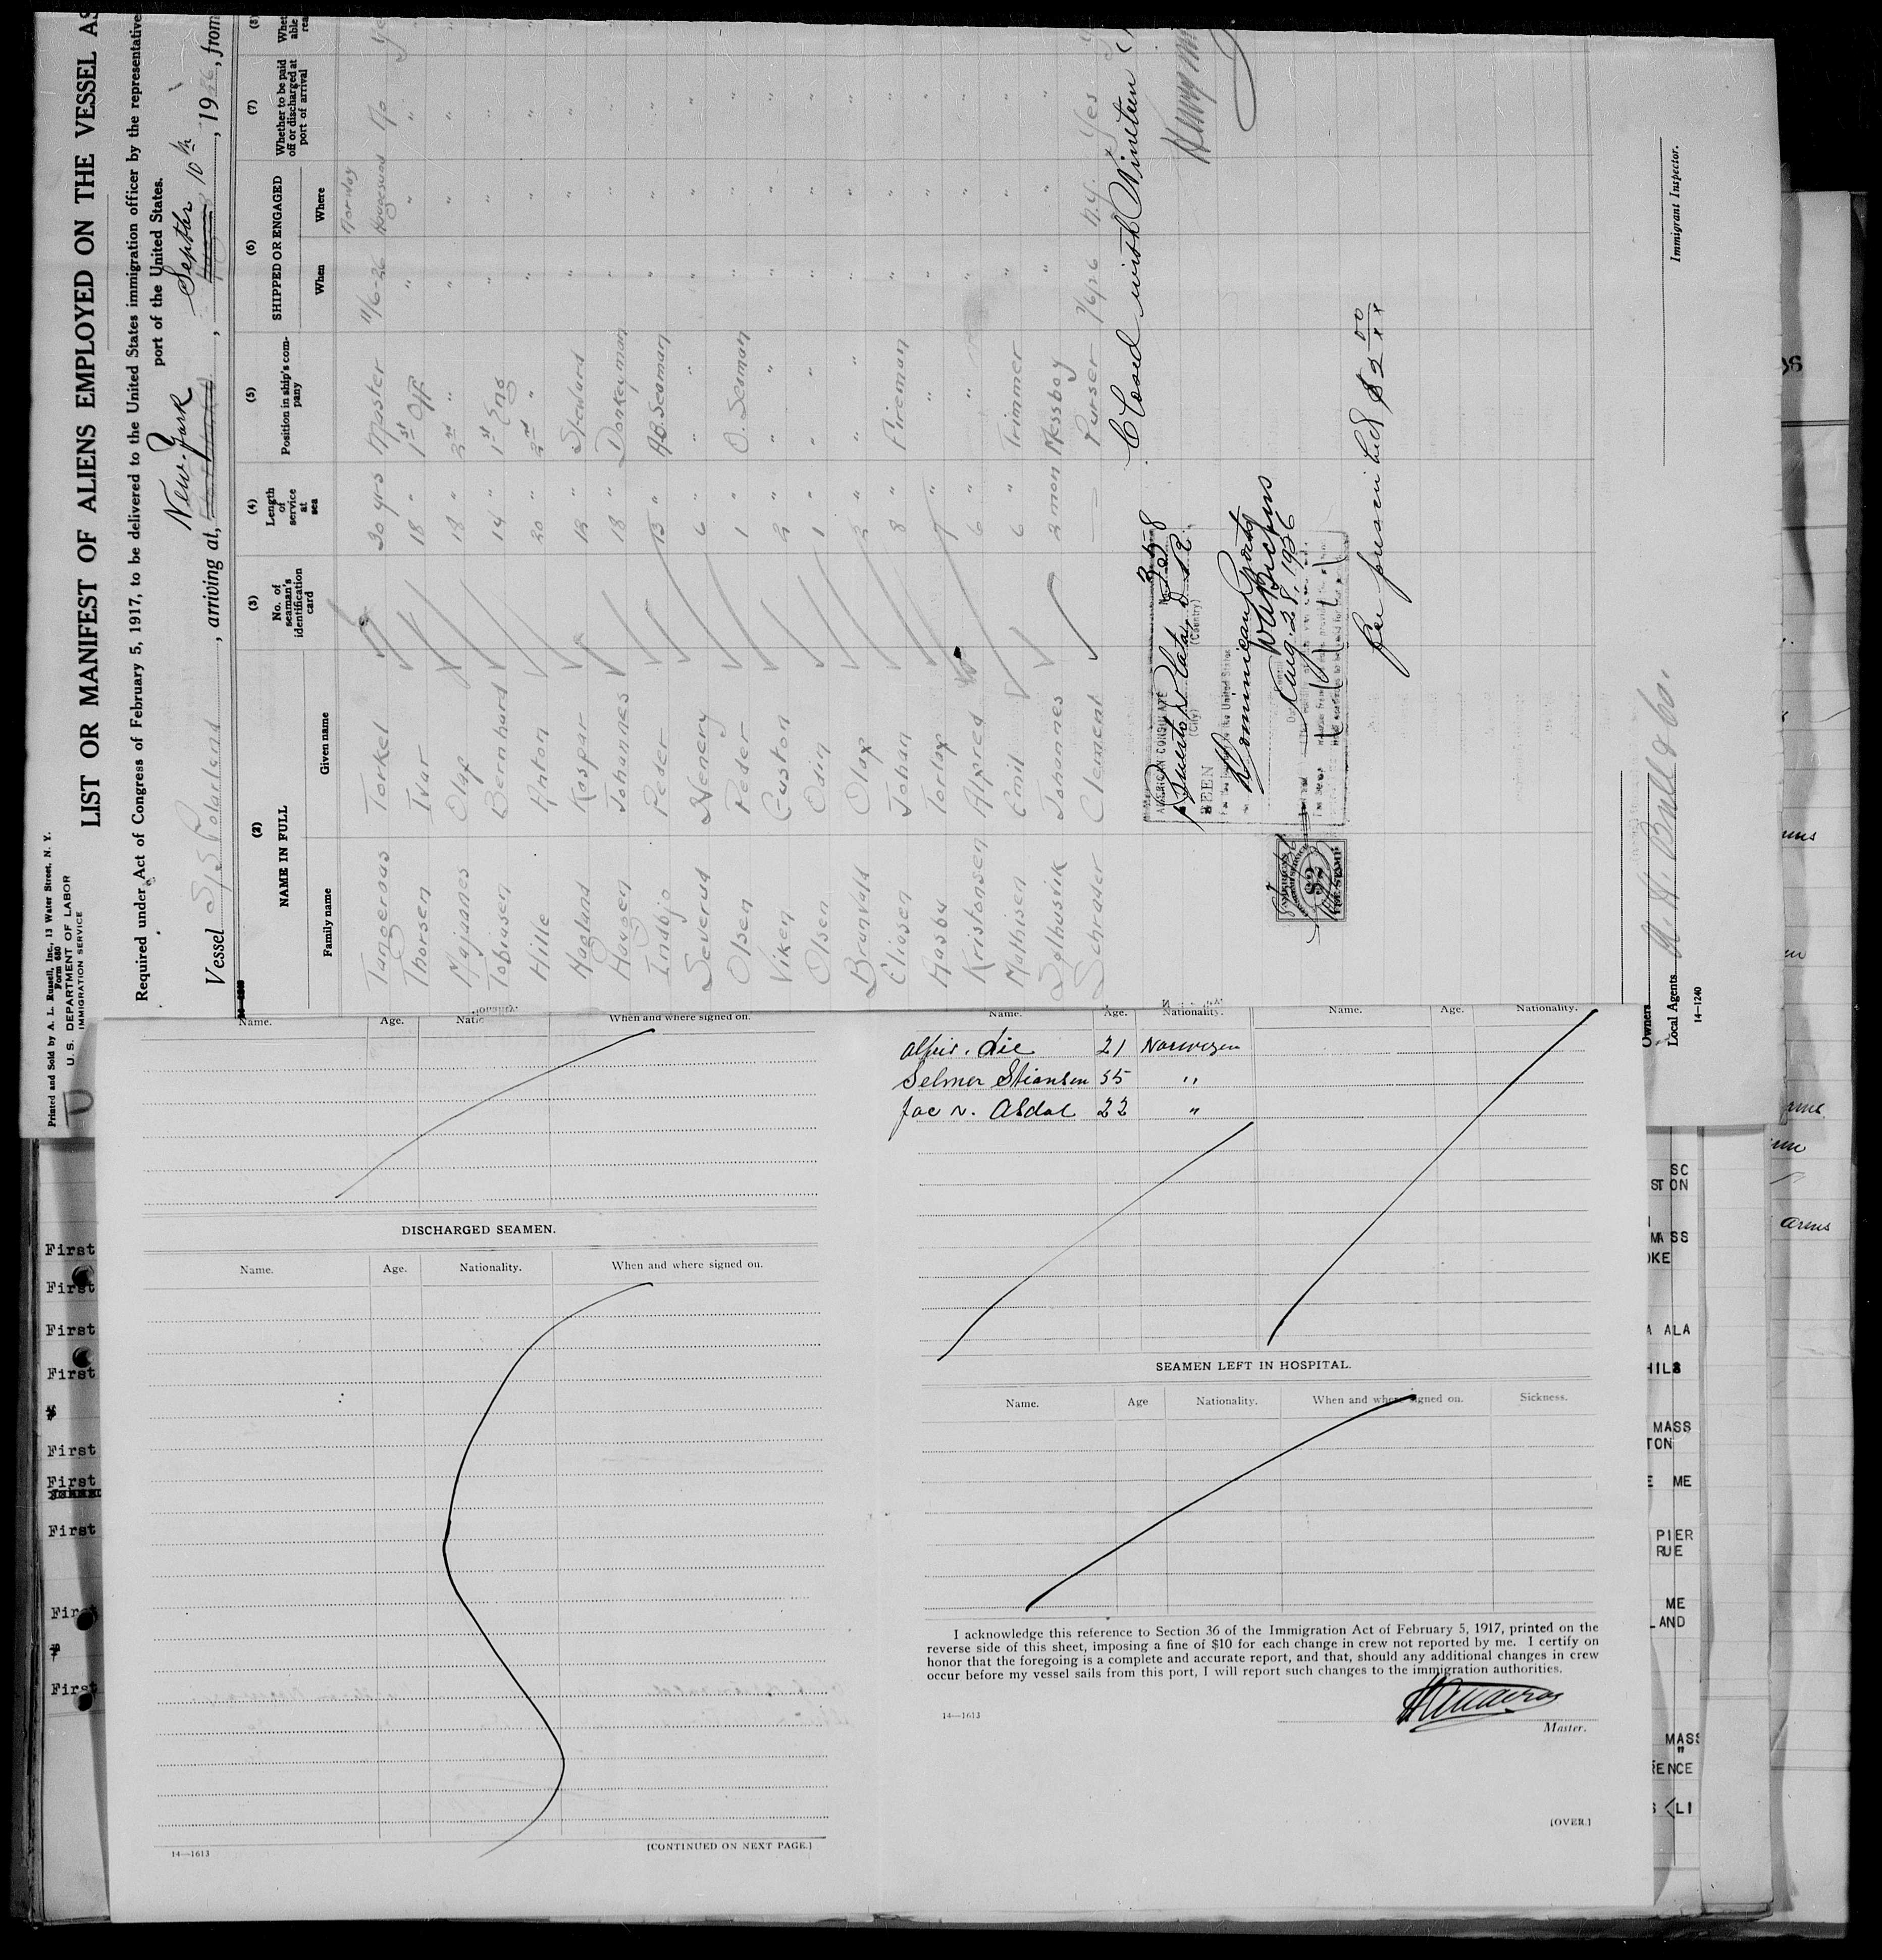 Printed and Sold by A. L. Russell, Inc., 13 Water Street, N. Y.
Form 680
U. S. DEPARTMENT OF LABOR
IMMIGRATION SERVICE
LIST OR MANIFEST OF ALIENS EMPLOYED ON THE VESSEL AS
Required under Act of Congress of February 5, 1917, to be delivered to the United States immigration officer by the representative
port of the United States.
Vessel S/S Polarland, arriving at, New-York, Septbr 10th, 1926, from
(2) NAME IN FULL
Family name Given name
(3) No. of seaman's identification card
(4) Length of service at sea
(5) Position in ship's company
(6) SHIPPED OR ENGAGED
When Where
(7) Whether to be paid off or discharged at port of arrival
(8)
Norway
Tangerous Torkel 30 yrs Master 11/6-26 Haugesund No Ye
Thorsen Ivar 18 " 1st Off " " "
Majuanes Olaf 18 " 2nd " " " "
Tobiasen Bernhard 14 " 1st Eng " " "
Hille Anton 20 " 2nd " " " "
Hagland Kospar 12 " Steward " " "
Haugen Johannes 18 " Donkeyman " " "
Indbjo Peder 13 " AB. Seaman " " "
Severud Henery 6 " " " " "
Olsen Peder 1 " O. Seaman " " "
Viken Guston 2 " " " " "
Olsen Odin 1 " " " " "
Brunvald Olaf 2 " " " " "
Eliasen Johan 8 " Fireman " " "
Hasby Torlaf 7 " " " " "
Kristonsen Alfred 6 " " " " "
Mathisen Emil 6 " Trimmer " " "
Johannes 2 mon Messboy " " "
Schrader Clement Purser 7/6/26 N.Y. Yes
Closed with Nineteen
Henry
AMERICAN CONSULATE
No. 228
Puerto Plata, D.R.
(City) (Country)
SEEN
Dominican Ports
Aug. 28, 1926
Fee prescribed $2.00
$2
FEE STAMP
Immigrant Inspector.
Owners
Local Agents A. H. Bull & Co.
14—1240
Name. Age. When and where signed on.
DISCHARGED SEAMEN.
Name. Age. Nationality. When and where signed on.
14—1613
[CONTINUED ON NEXT PAGE.]
Name. Age. Nationality. Name. Age. Nationality.
Alfred. Lie 21 Norwegen
Selmer Stiansen 35 "
Jac N. Asdal 22 "
SEAMEN LEFT IN HOSPITAL.
Name. Age Nationality. When and where signed on. Sickness.
I acknowledge this reference to Section 36 of the Immigration Act of February 5, 1917, printed on the
reverse side of this sheet, imposing a fine of $10 for each change in crew not reported by me. I certify on
honor that the foregoing is a complete and accurate report, and that, should any additional changes in crew
occur before my vessel sails from this port, I will report such changes to the immigration authorities.
14—1613
Master.
[OVER.]
First
First
First
First
First
First
First
First
First
MASS
ALA
MASS
ME
PIER
RUE
ME
LAND
MASS
arms